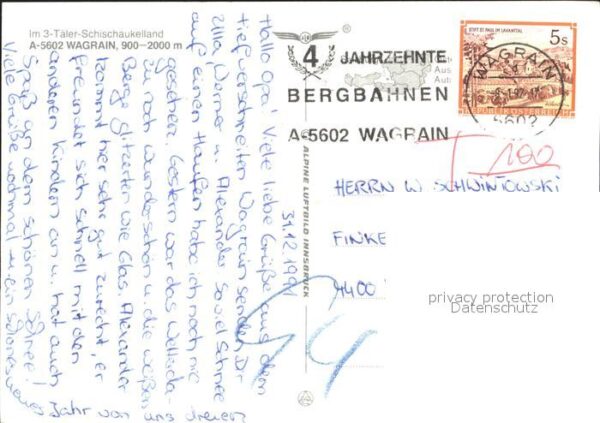 Im 3-Täler-Schischaukelland
A-5602 WAGRAIN, 900–2000 m
4 JAHRZEHNTE
BERGBAHNEN
A-5602 WAGRAIN
STIFT ST. PAUL IM LAVANTTAL
5s
REPUBLIK ÖSTERREICH
WAGRAIN
5602
T 100
HERRN W. SCHWINTOWSKI
FINKE
4400
privacy protection
Datenschutz
ALPINE LUFTBILD INNSBRUCK
31.12.1991
Hallo Opa! Viele liebe Grüße aus dem
tiefverschneiten Wagrain senden Dir
Ulla, Werner u. Alexander. Soviel Schnee
auf einen Haufen habe ich noch nie
gesehen. Gestern war das Wetter da-
zu noch wunderschön u. die weißen
Berge glitzerten wie Glas. Alexander
kommt hier sehr gut zurecht, er
freundet sich schnell mit den
anderen Kindern an u. hat auch
Spaß an dem schönen Schnee!
Viele Grüße nochmal u. ein schönes neues
Jahr von uns dreien